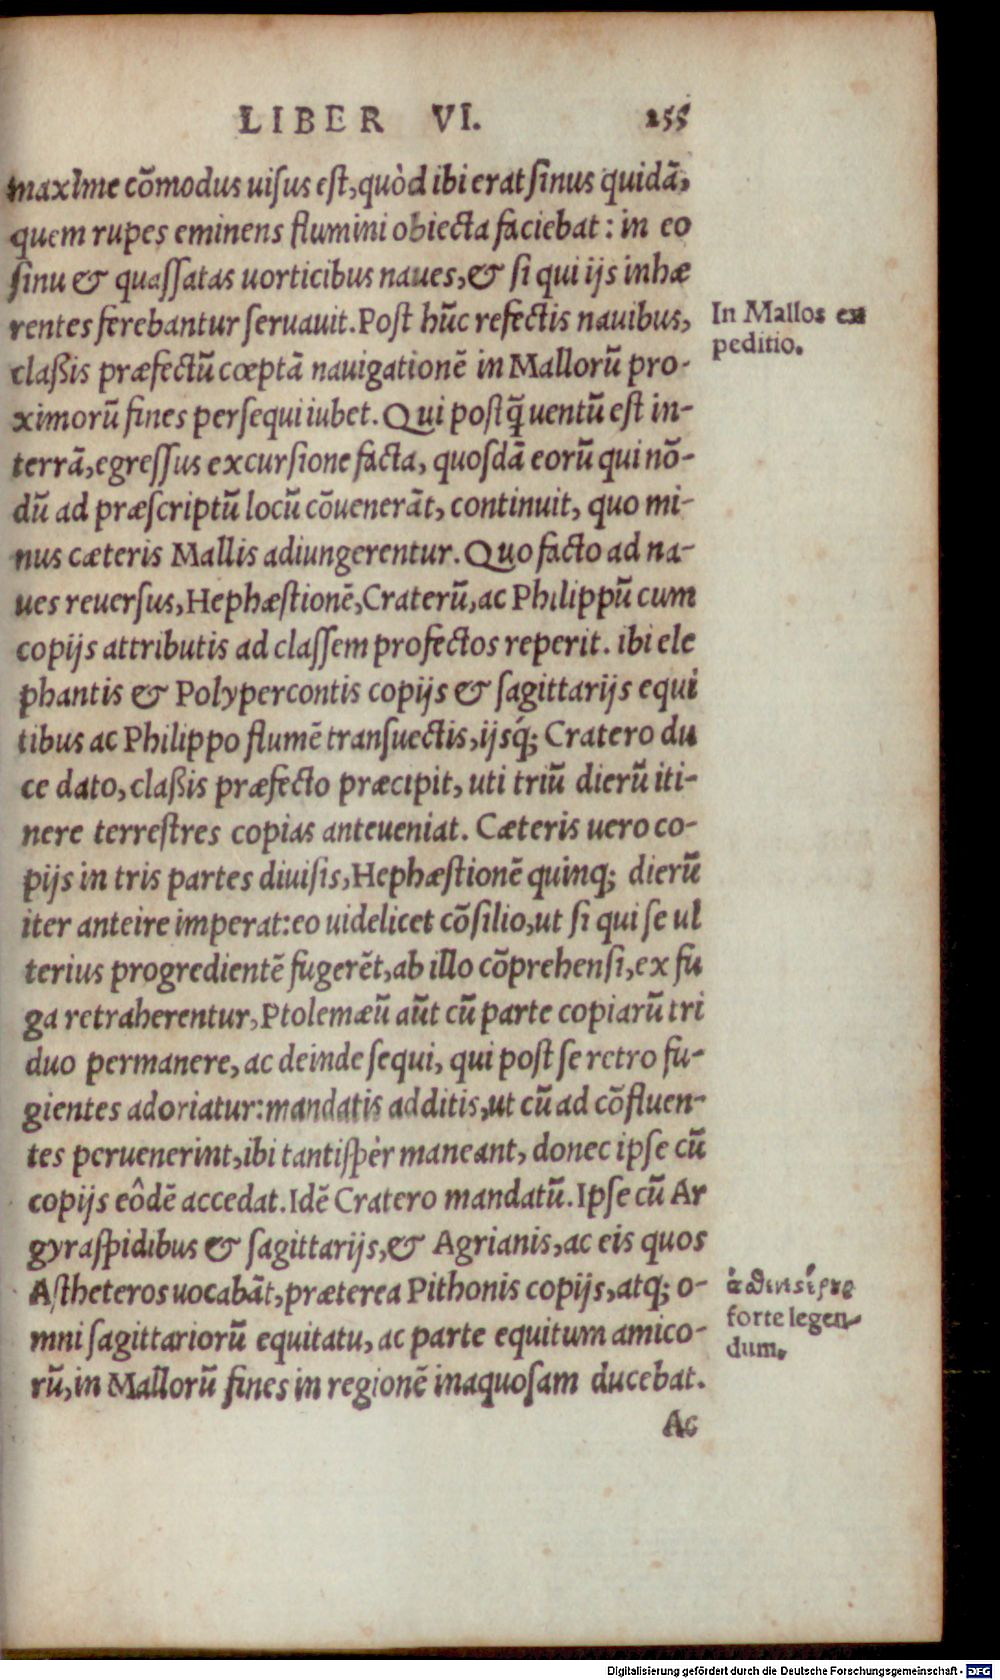 LIBER VI. 255
maxime cõmodus uisus est, quòd ibi erat sinus quidã,
quem rupes eminens flumini obiecta faciebat: in eo
sinu & quassatas uorticibus naues, & si qui ijs inhæ
rentes ferebantur seruauit. Post hũc refectis nauibus,
claßis præfectũ cœptã nauigationẽ in Mallorũ pro-
ximorũ fines persequi iubet. Qui postq̃ uentũ est in-
terrã, egressus excursione facta, quosdã eorũ qui nõ-
dũ ad præscriptũ locũ cõuenerãt, continuit, quo mi-
nus cæteris Mallis adiungerentur. Quo facto ad na-
ues reuersus, Hephæstionẽ, Craterũ, ac Philippũ cum
copijs attributis ad classem profectos reperit. ibi ele
phantis & Polypercontis copijs & sagittarijs equi
tibus ac Philippo flumẽ transuectis, ijsq́; Cratero du
ce dato, claßis præfecto præcipit, uti triũ dierũ iti-
nere terrestres copias anteueniat. Cæteris uero co-
pijs in tris partes diuisis, Hephæstionẽ quinq; dierũ
iter anteire imperat: eo uidelicet cõsilio, ut si qui se ul
terius progredientẽ fugerẽt, ab illo cõprehensi, ex fu
ga retraherentur, Ptolemæũ aũt cũ parte copiarũ tri
duo permanere, ac deinde sequi, qui post se retro fu-
gientes adoriatur: mandatis additis, ut cũ ad cõfluen-
tes peruenerint, ibi tantisper maneant, donec ipse cũ
copijs eôdẽ accedat. Idẽ Cratero mandatũ. Ipse cũ Ar
gyraspidibus & sagittarijs, & Agrianis, ac eis quos
Astheteros uocabãt, præterea Pithonis copijs, atq; o-
mni sagittariorũ equitatu, ac parte equitum amico-
rũ, in Mallorũ fines in regionẽ inaquosam ducebat.
Ac
In Mallos ex
peditio.
forte legen-
dum.
Digitalisierung gefördert durch die Deutsche Forschungsgemeinschaft - DFG